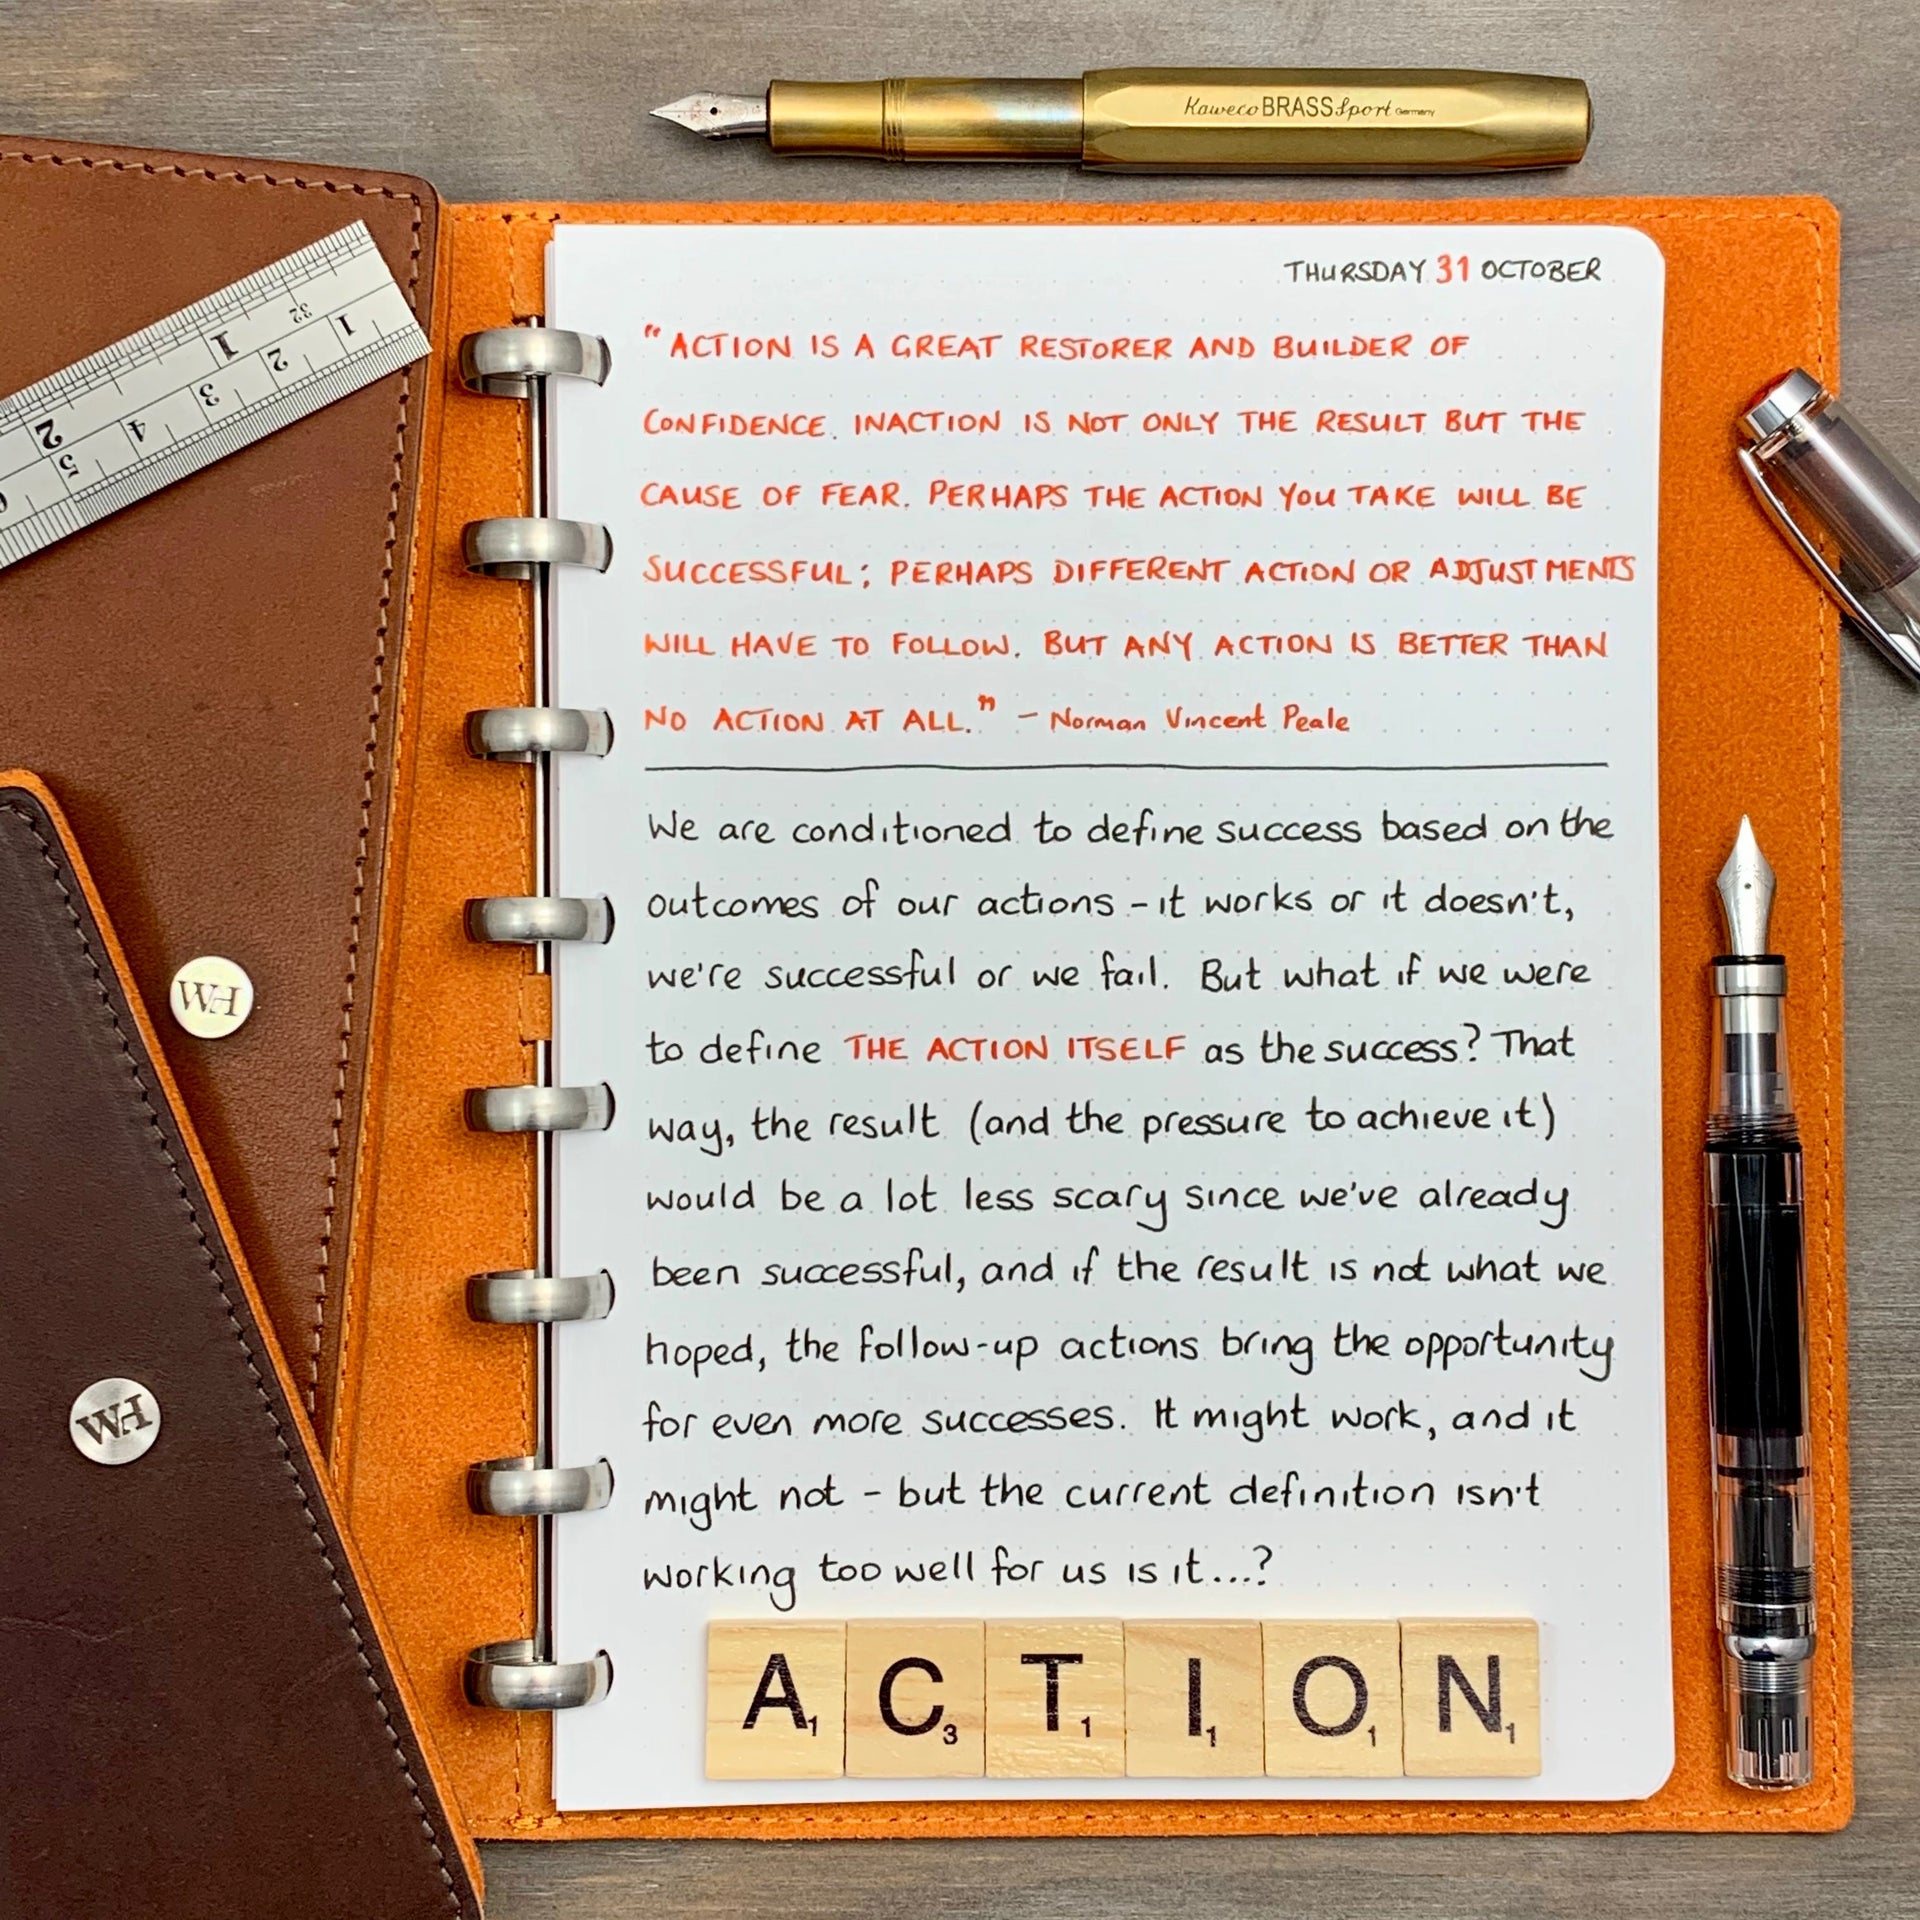 Kaweco BRASS Sport Germany
THURSDAY 31 OCTOBER
"ACTION IS A GREAT RESTORER AND BUILDER OF
CONFIDENCE. INACTION IS NOT ONLY THE RESULT BUT THE
CAUSE OF FEAR. PERHAPS THE ACTION YOU TAKE WILL BE
SUCCESSFUL; PERHAPS DIFFERENT ACTION OR ADJUSTMENTS
WILL HAVE TO FOLLOW. BUT ANY ACTION IS BETTER THAN
NO ACTION AT ALL." – Norman Vincent Peale
We are conditioned to define success based on the
outcomes of our actions – it works or it doesn't,
we're successful or we fail. But what if we were
to define THE ACTION ITSELF as the success? That
way, the result (and the pressure to achieve it)
would be a lot less scary since we've already
been successful, and if the result is not what we
hoped, the follow-up actions bring the opportunity
for even more successes. It might work, and it
might not – but the current definition isn't
working too well for us is it...?
A1 C3 T1 I1 O1 N1
1 2
32
1 2 3 4 5 6
WH
WH